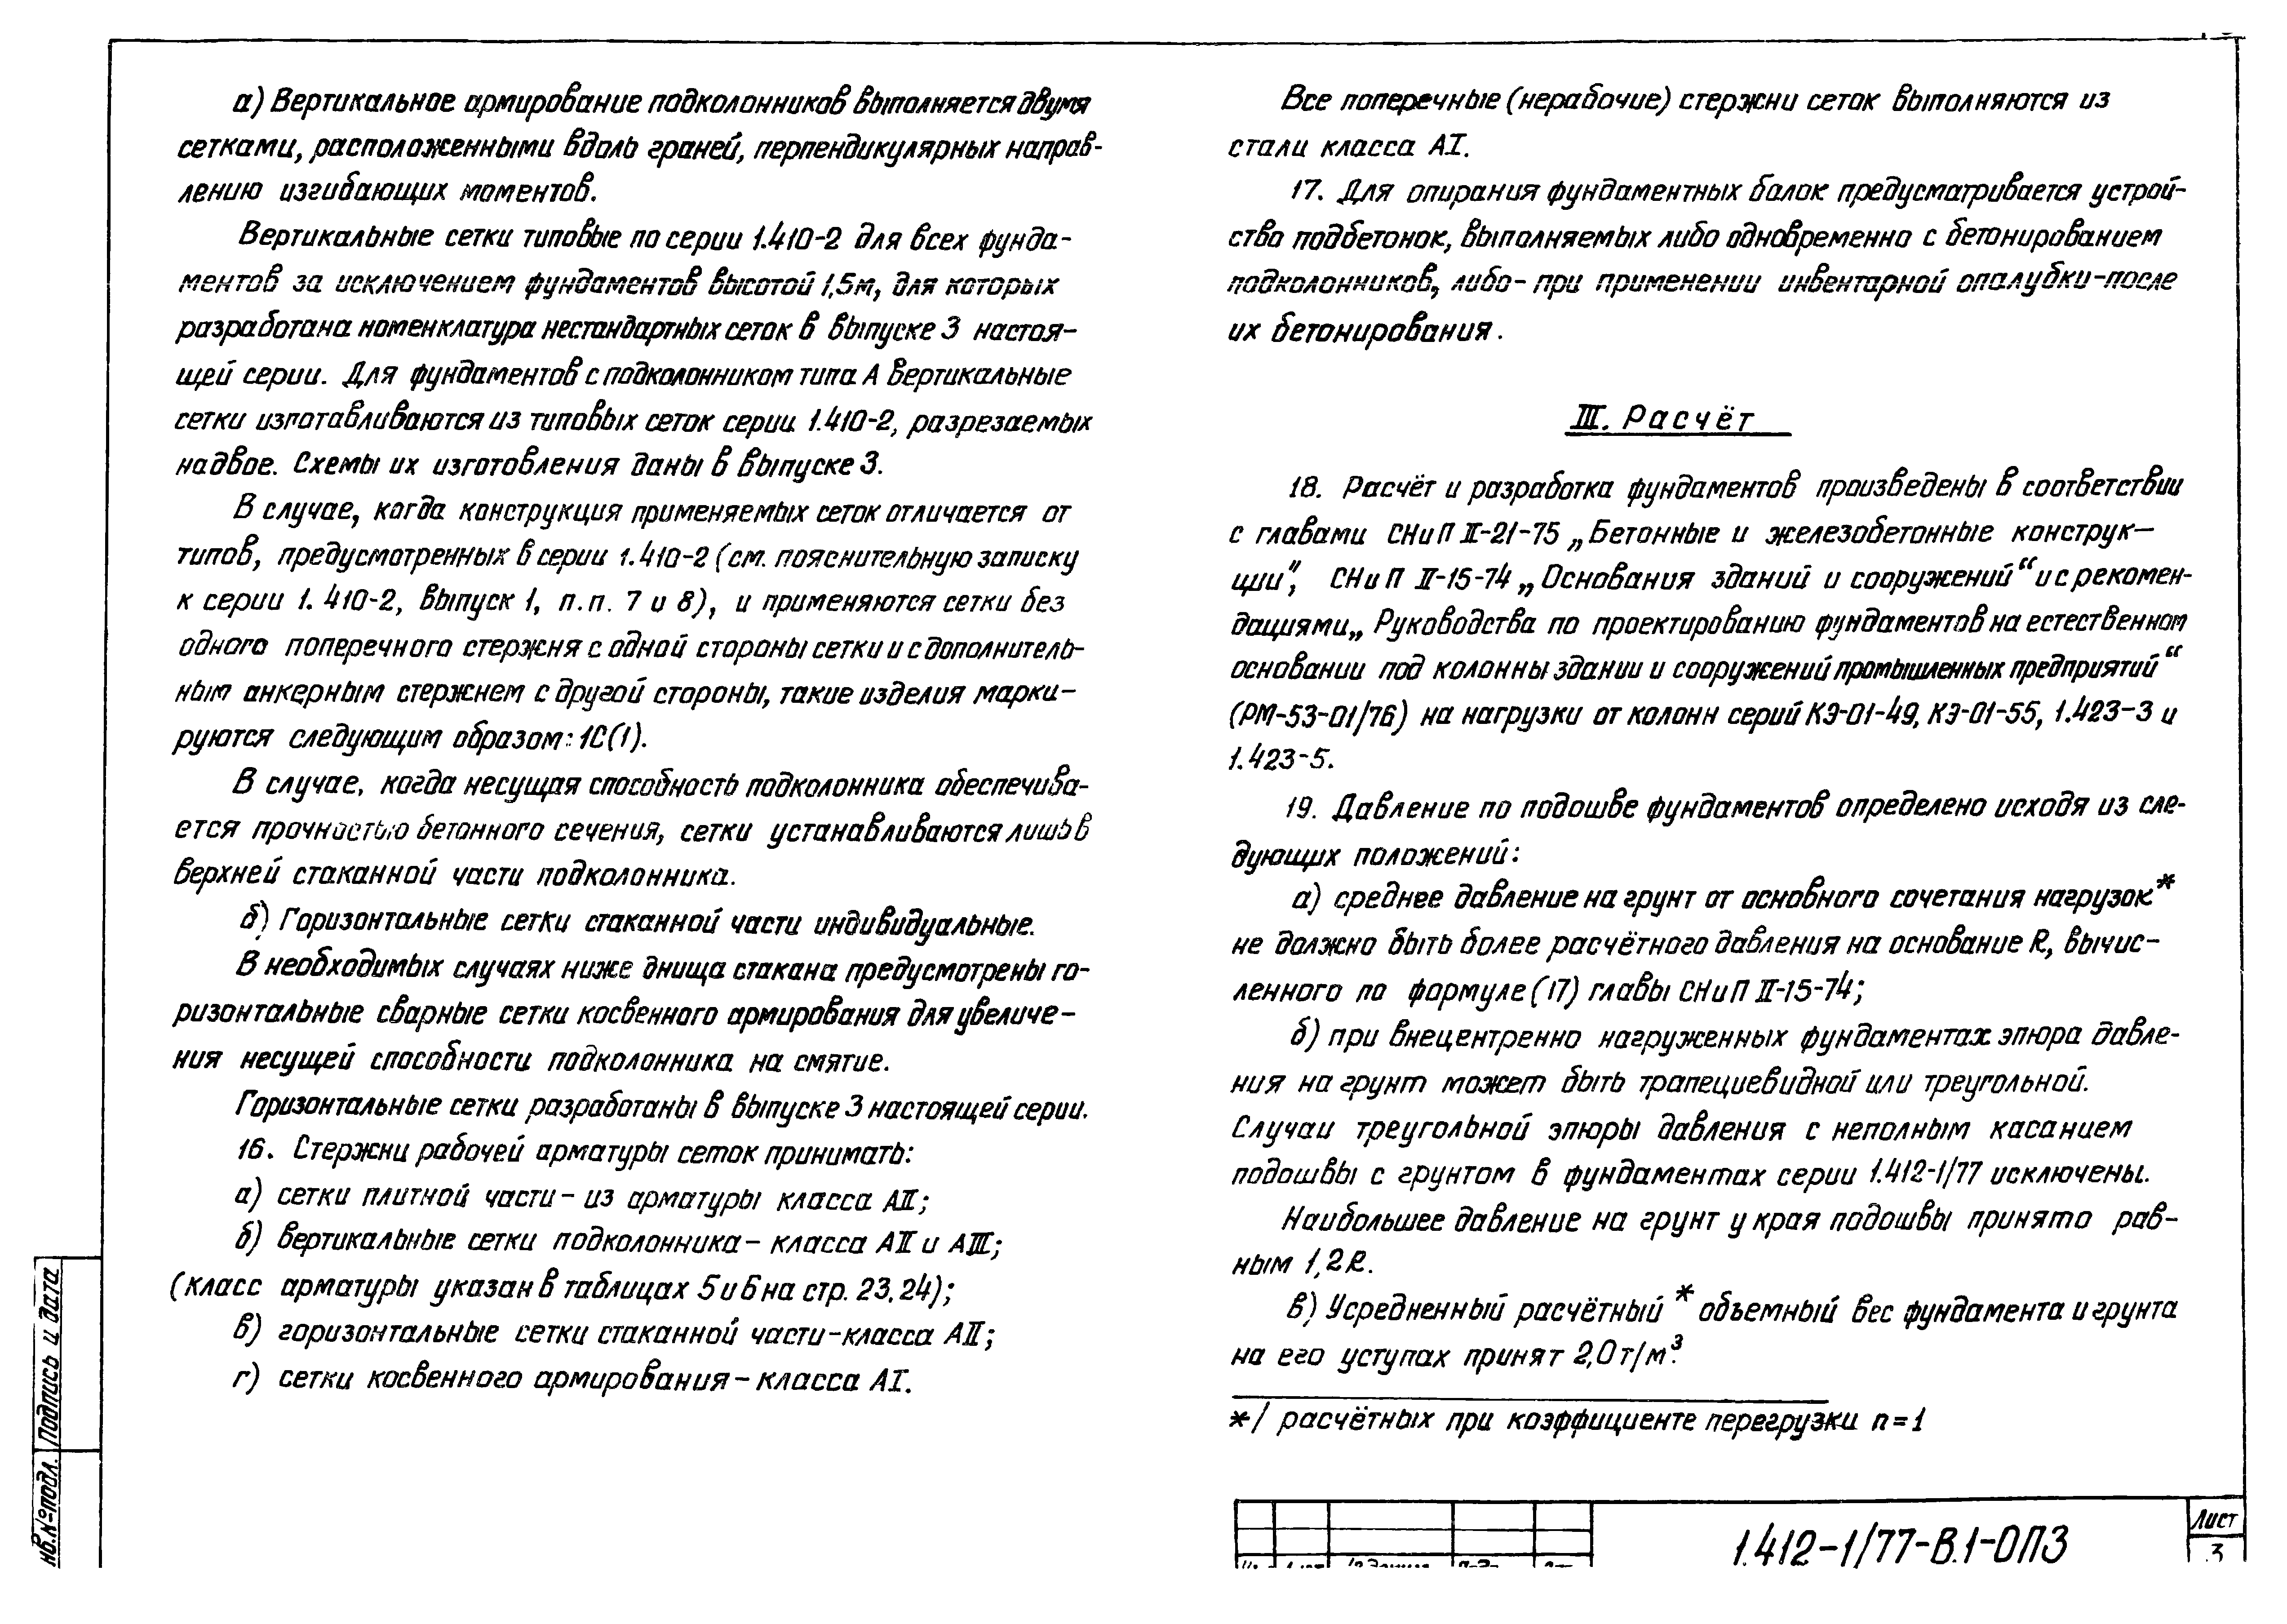 а) Вертикальное армирование подколонников выполняется двумя
сетками, расположенными вдоль граней, перпендикулярных направ-
лению изгибающих моментов.
Вертикальные сетки типовые по серии 1.410-2 для всех фунда-
ментов за исключением фундаментов высотой 1,5м, для которых
разработана номенклатура нестандартных сеток в выпуске 3 настоя-
щей серии. Для фундаментов с подколонником типа А вертикальные
сетки изготавливаются из типовых сеток серии 1.410-2, разрезаемых
надвое. Схемы их изготовления даны в выпуске 3.
В случае, когда конструкция применяемых сеток отличается от
типов, предусмотренных в серии 1.410-2 (см. пояснительную записку
к серии 1.410-2, выпуск 1, п.п. 7 и 8), и применяются сетки без
одного поперечного стержня с одной стороны сетки и с дополнитель-
ным анкерным стержнем с другой стороны, такие изделия марки-
руются следующим образом: 1С(1).
В случае, когда несущая способность подколонника обеспечива-
ется прочностью бетонного сечения, сетки устанавливаются лишь в
верхней стаканной части подколонника.
б) Горизонтальные сетки стаканной части индивидуальные.
В необходимых случаях ниже днища стакана предусмотрены го-
ризонтальные сварные сетки косвенного армирования для увеличе-
ния несущей способности подколонника на смятие.
Горизонтальные сетки разработаны в выпуске 3 настоящей серии.
16. Стержни рабочей арматуры сеток принимать:
а) сетки плитной части - из арматуры класса АII;
б) вертикальные сетки подколонника - класса АII и АIII;
(класс арматуры указан в таблицах 5 и 6 на стр. 23,24);
в) горизонтальные сетки стаканной части - класса АII;
г) сетки косвенного армирования - класса АI.
Все поперечные (нерабочие) стержни сеток выполняются из
стали класса АI.
17. Для опирания фундаментных балок предусматривается устрой-
ство подбетонок, выполняемых либо одновременно с бетонированием
подколонников, либо - при применении инвентарной опалубки - после
их бетонирования.
III. Расчёт
18. Расчёт и разработка фундаментов произведены в соответствии
с главами СНиП II-21-75 „Бетонные и железобетонные конструк-
ции", СНиП II-15-74 „Основания зданий и сооружений“ и с рекомен-
дациями „Руководства по проектированию фундаментов на естественном
основании под колонны здании и сооружений промышленных предприятий“
(РМ-53-01/76) на нагрузки от колонн серий КЭ-01-49, КЭ-01-55, 1.423-3 и
1.423-5.
19. Давление по подошве фундаментов определено исходя из сле-
дующих положений:
а) среднее давление на грунт от основного сочетания нагрузок*
не должно быть более расчётного давления на основание R, вычис-
ленного по формуле (17) главы СНиП II-15-74;
б) при внецентренно нагруженных фундаментах эпюра давле-
ния на грунт может быть трапециевидной или треугольной.
Случаи треугольной эпюры давления с неполным касанием
подошвы с грунтом в фундаментах серии 1.412-1/77 исключены.
Наибольшее давление на грунт у края подошвы принято рав-
ным 1,2R.
в) Усредненный расчётный* объемный вес фундамента и грунта
на его уступах принят 2,0 т/м³.
*/ расчётных при коэффициенте перегрузки n=1
1.412-1/77-В.1-ОПЗ
Лист
3
Подпись и дата
нв.№подл.